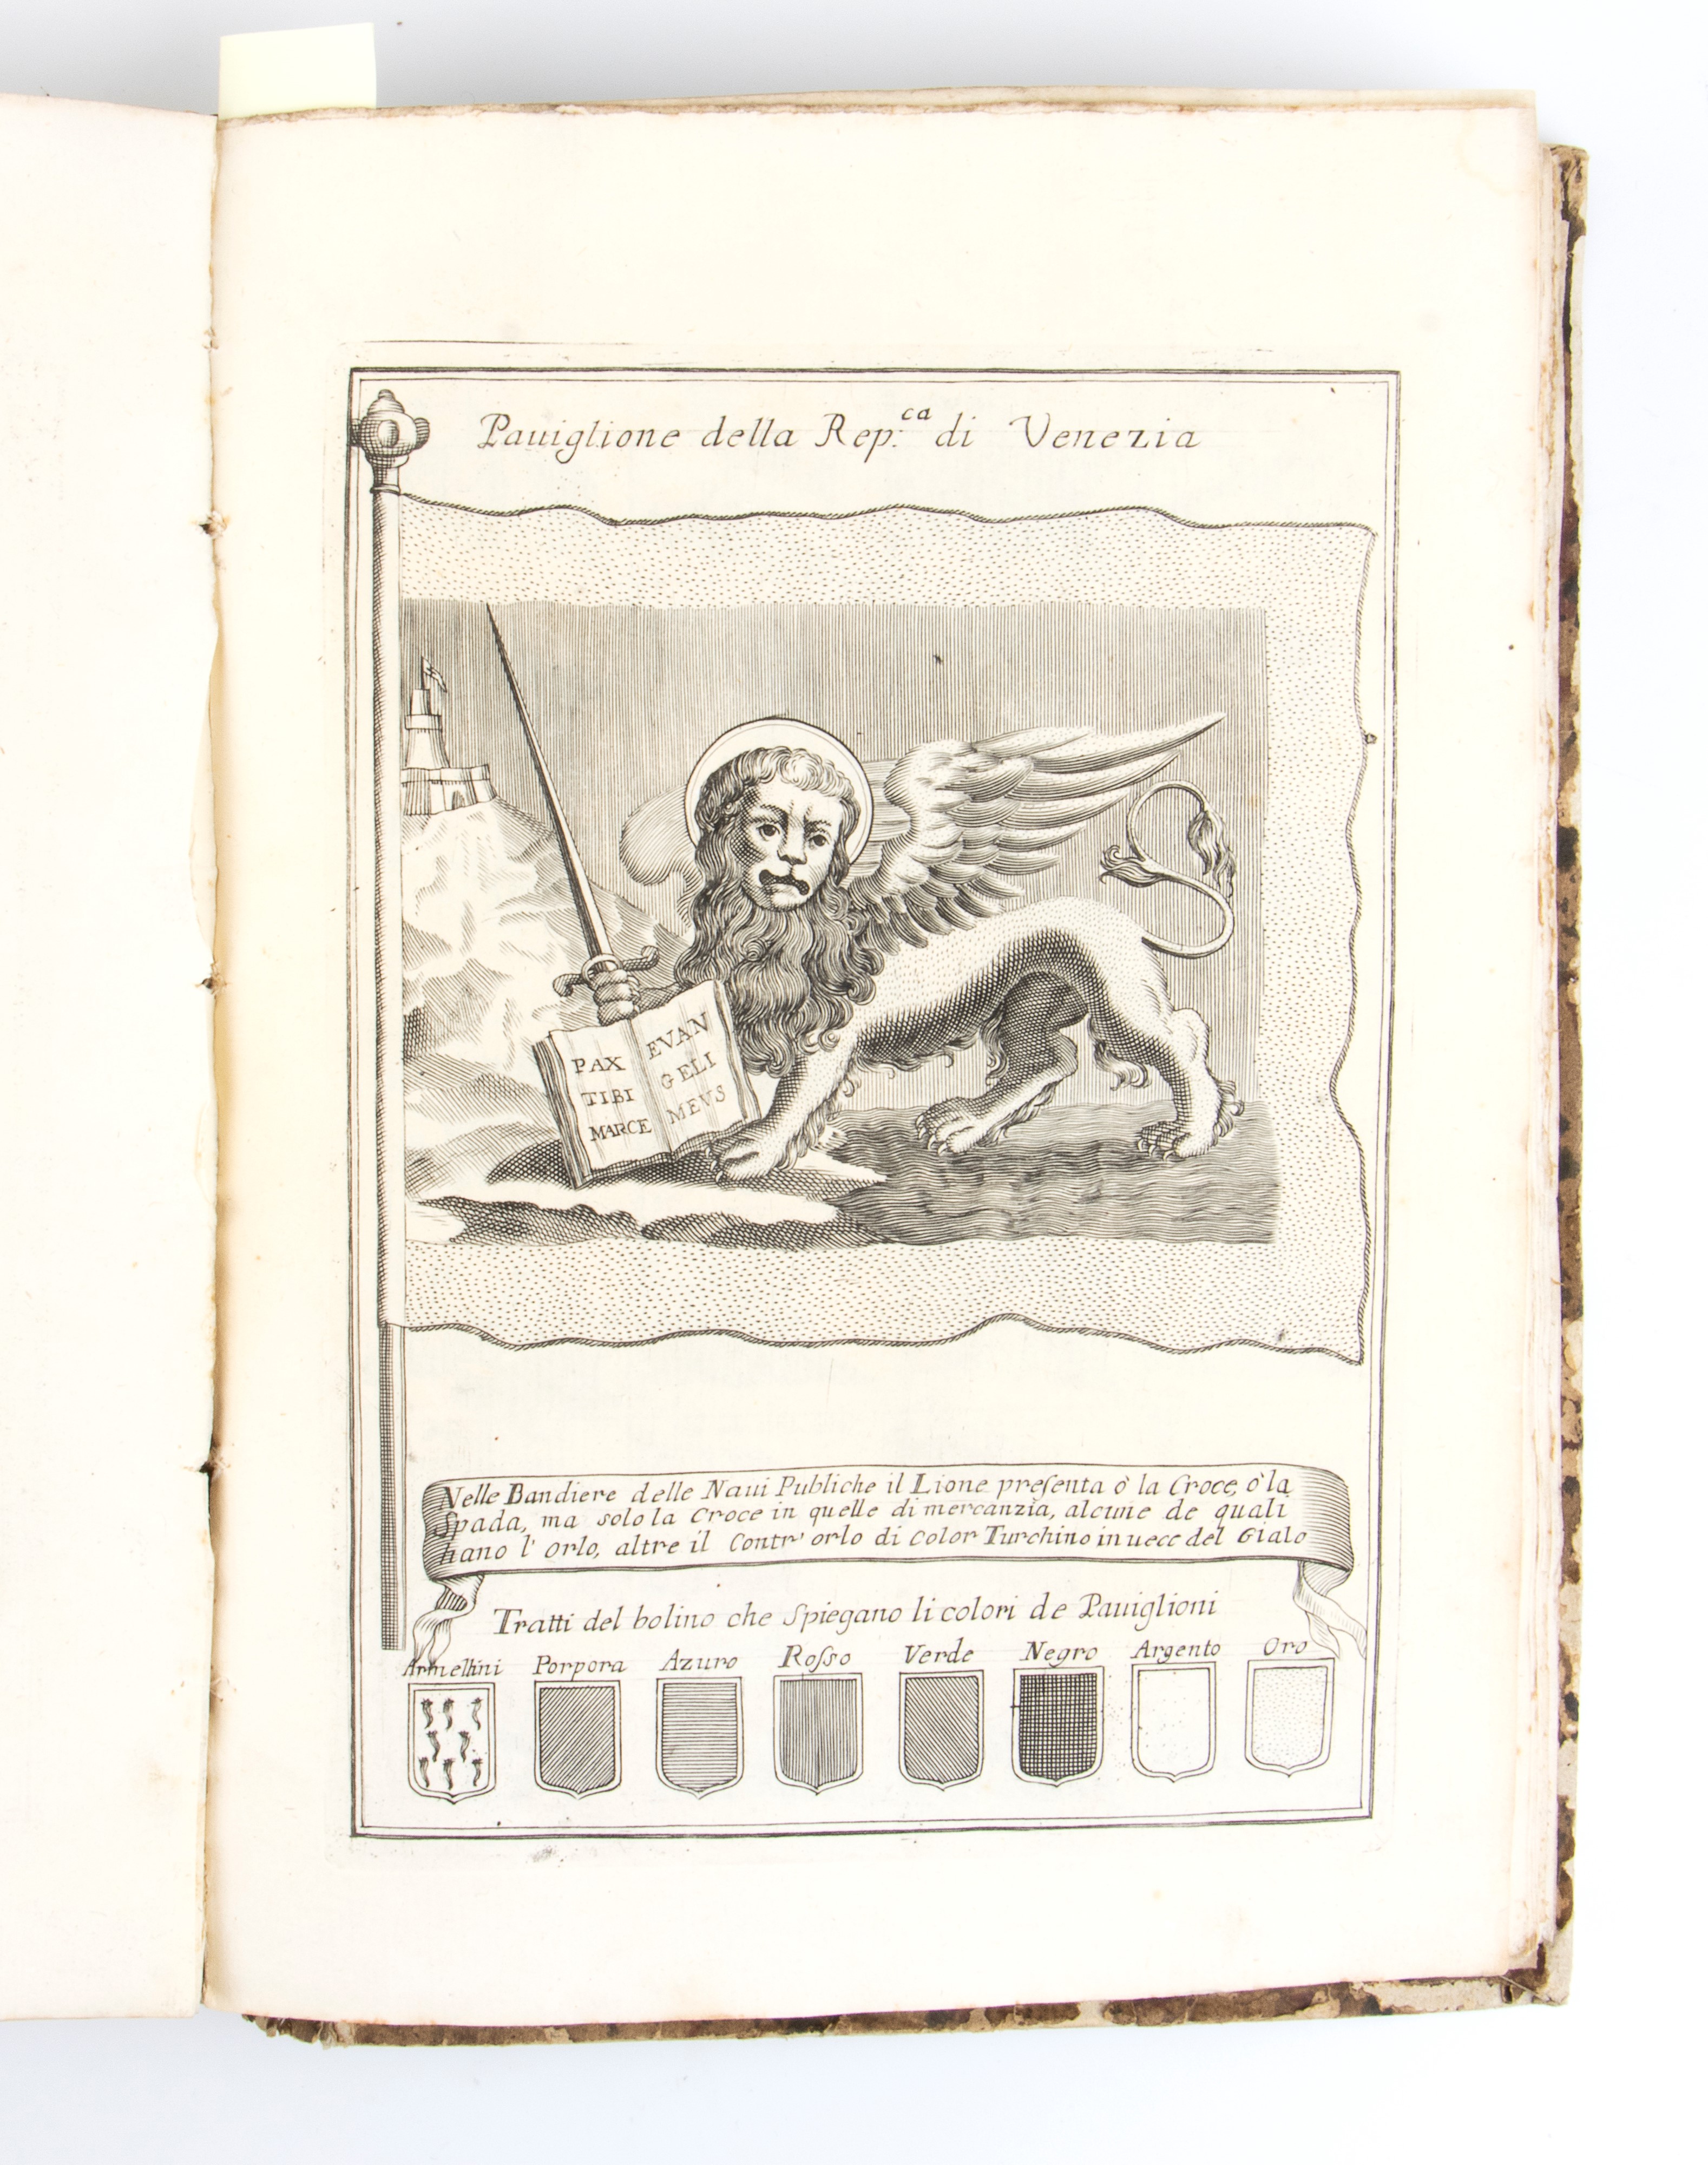 Pauiglione della Rep.ca di Venezia
PAX
TIBI
MARCE
EVAN
GELI
MEVS
Nelle Bandiere delle Naui Publiche il Lione preſenta ò la Croce, ò la
Spada, ma solo la Croce in quelle di mercanzia, alcune de quali
hano l' orlo, altre il Contr' orlo di Color Turchino in uece del Gialo
Tratti del bolino che Spiegano li colori de Pauiglioni
Armellini Porpora Azuro Roſso Verde Negro Argento Oro